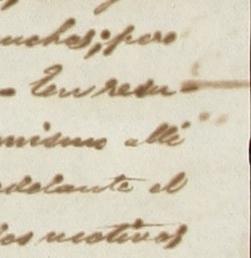 muchas; pero
- En resu-
mismo alli
adelante el
los motivos